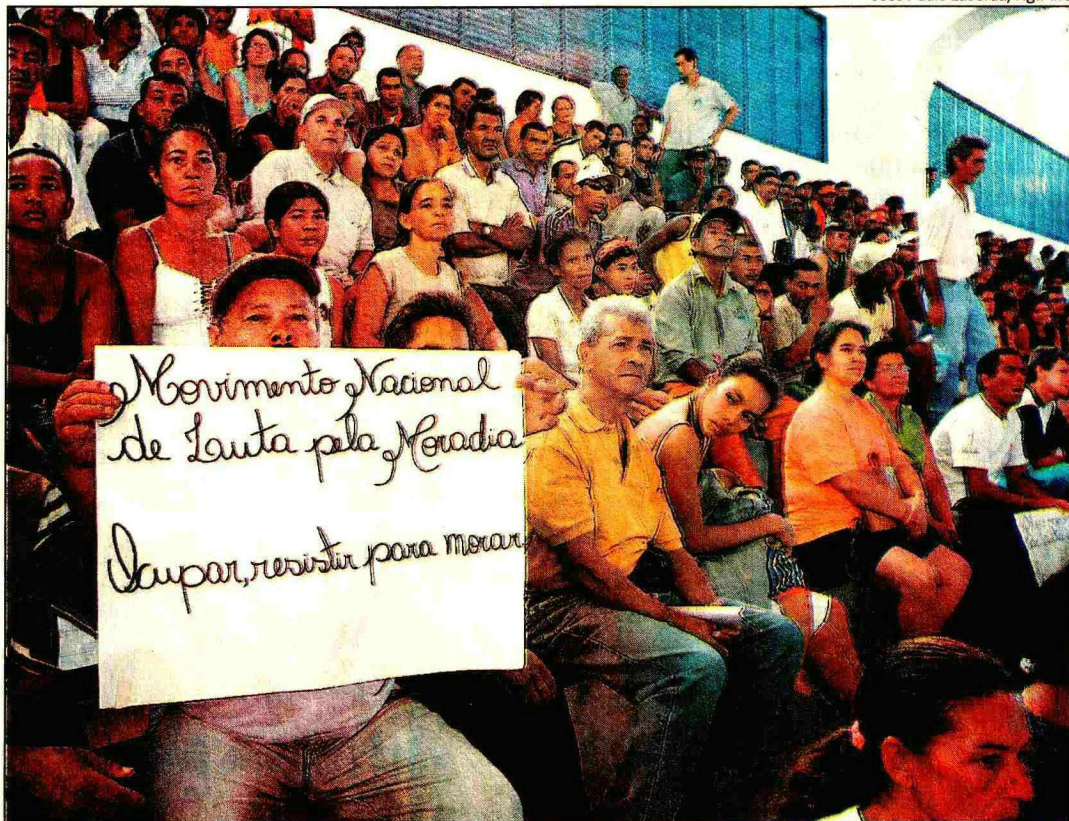 Movimento Nacional
de Luta pela Moradia
Ocupar, resistir para morar